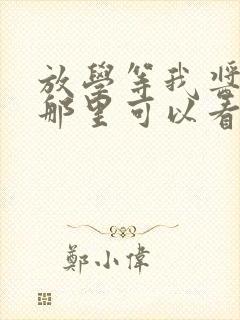 放學等我獎
那里可以看
鄭小偉